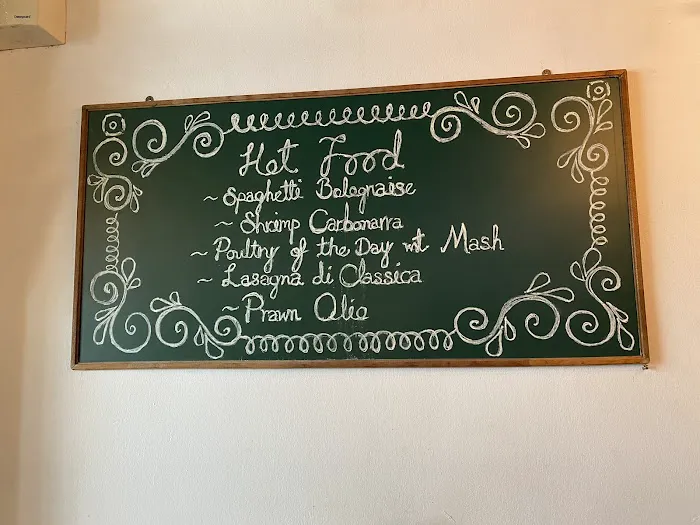 Hot Food
~ Spaghetti Bolognaise
~ Shrimp Carbonarra
~ Poultry of the Day wt Mash
~ Lasagna di Classica
~ Prawn Olio